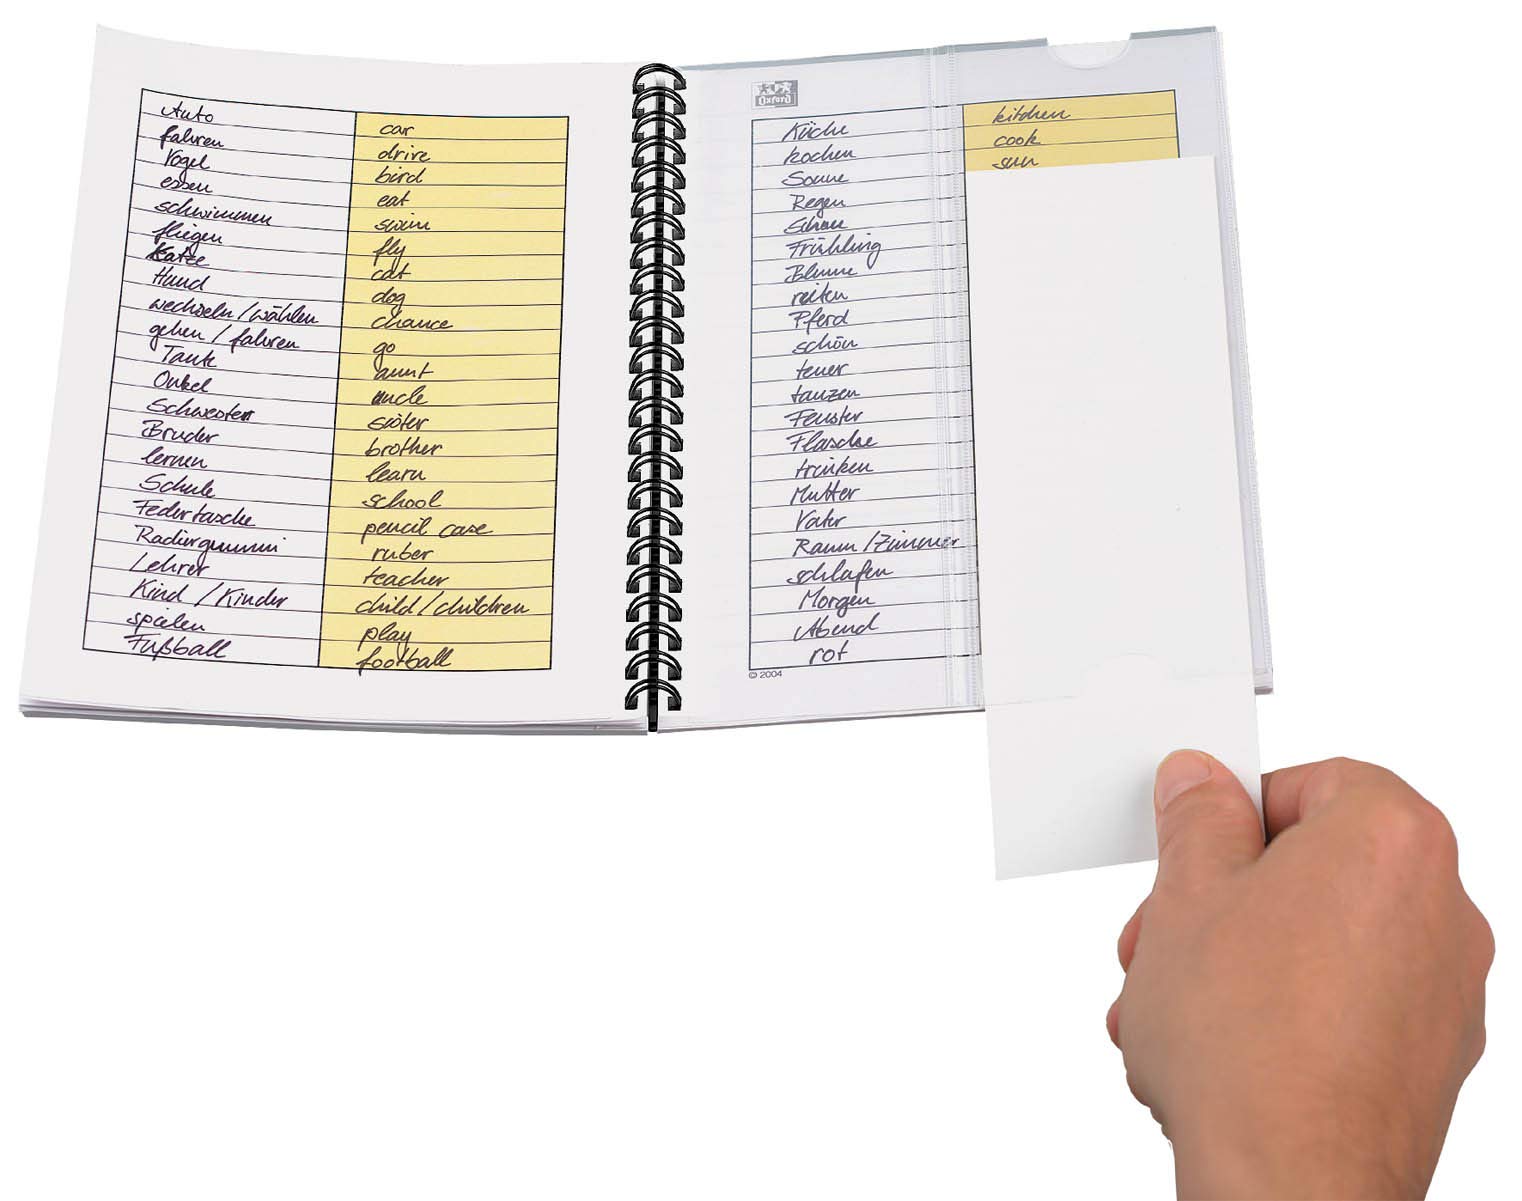 Auto car
fahren drive
Vogel bird
essen eat
schwimmen swim
fliegen fly
Katze cat
Hund dog
wechseln/wählen chance
gehen / fahren go
Tante aunt
Onkel uncle
Schwester sister
Bruder brother
lernen learn
Schule school
Federtasche pencil case
Radiergummi ruber
Lehrer teacher
Kind / Kinder child / children
spielen play
Fußball football
Oxford
Küche kitchen
kochen cook
Sonne sun
Regen
Frühling
Blume
reiten
Pferd
schön
teuer
tanzen
Fenster
Flasche
trinken
Mutter
Vater
Raum / Zimmer
schlafen
Morgen
Abend
rot
© 2004